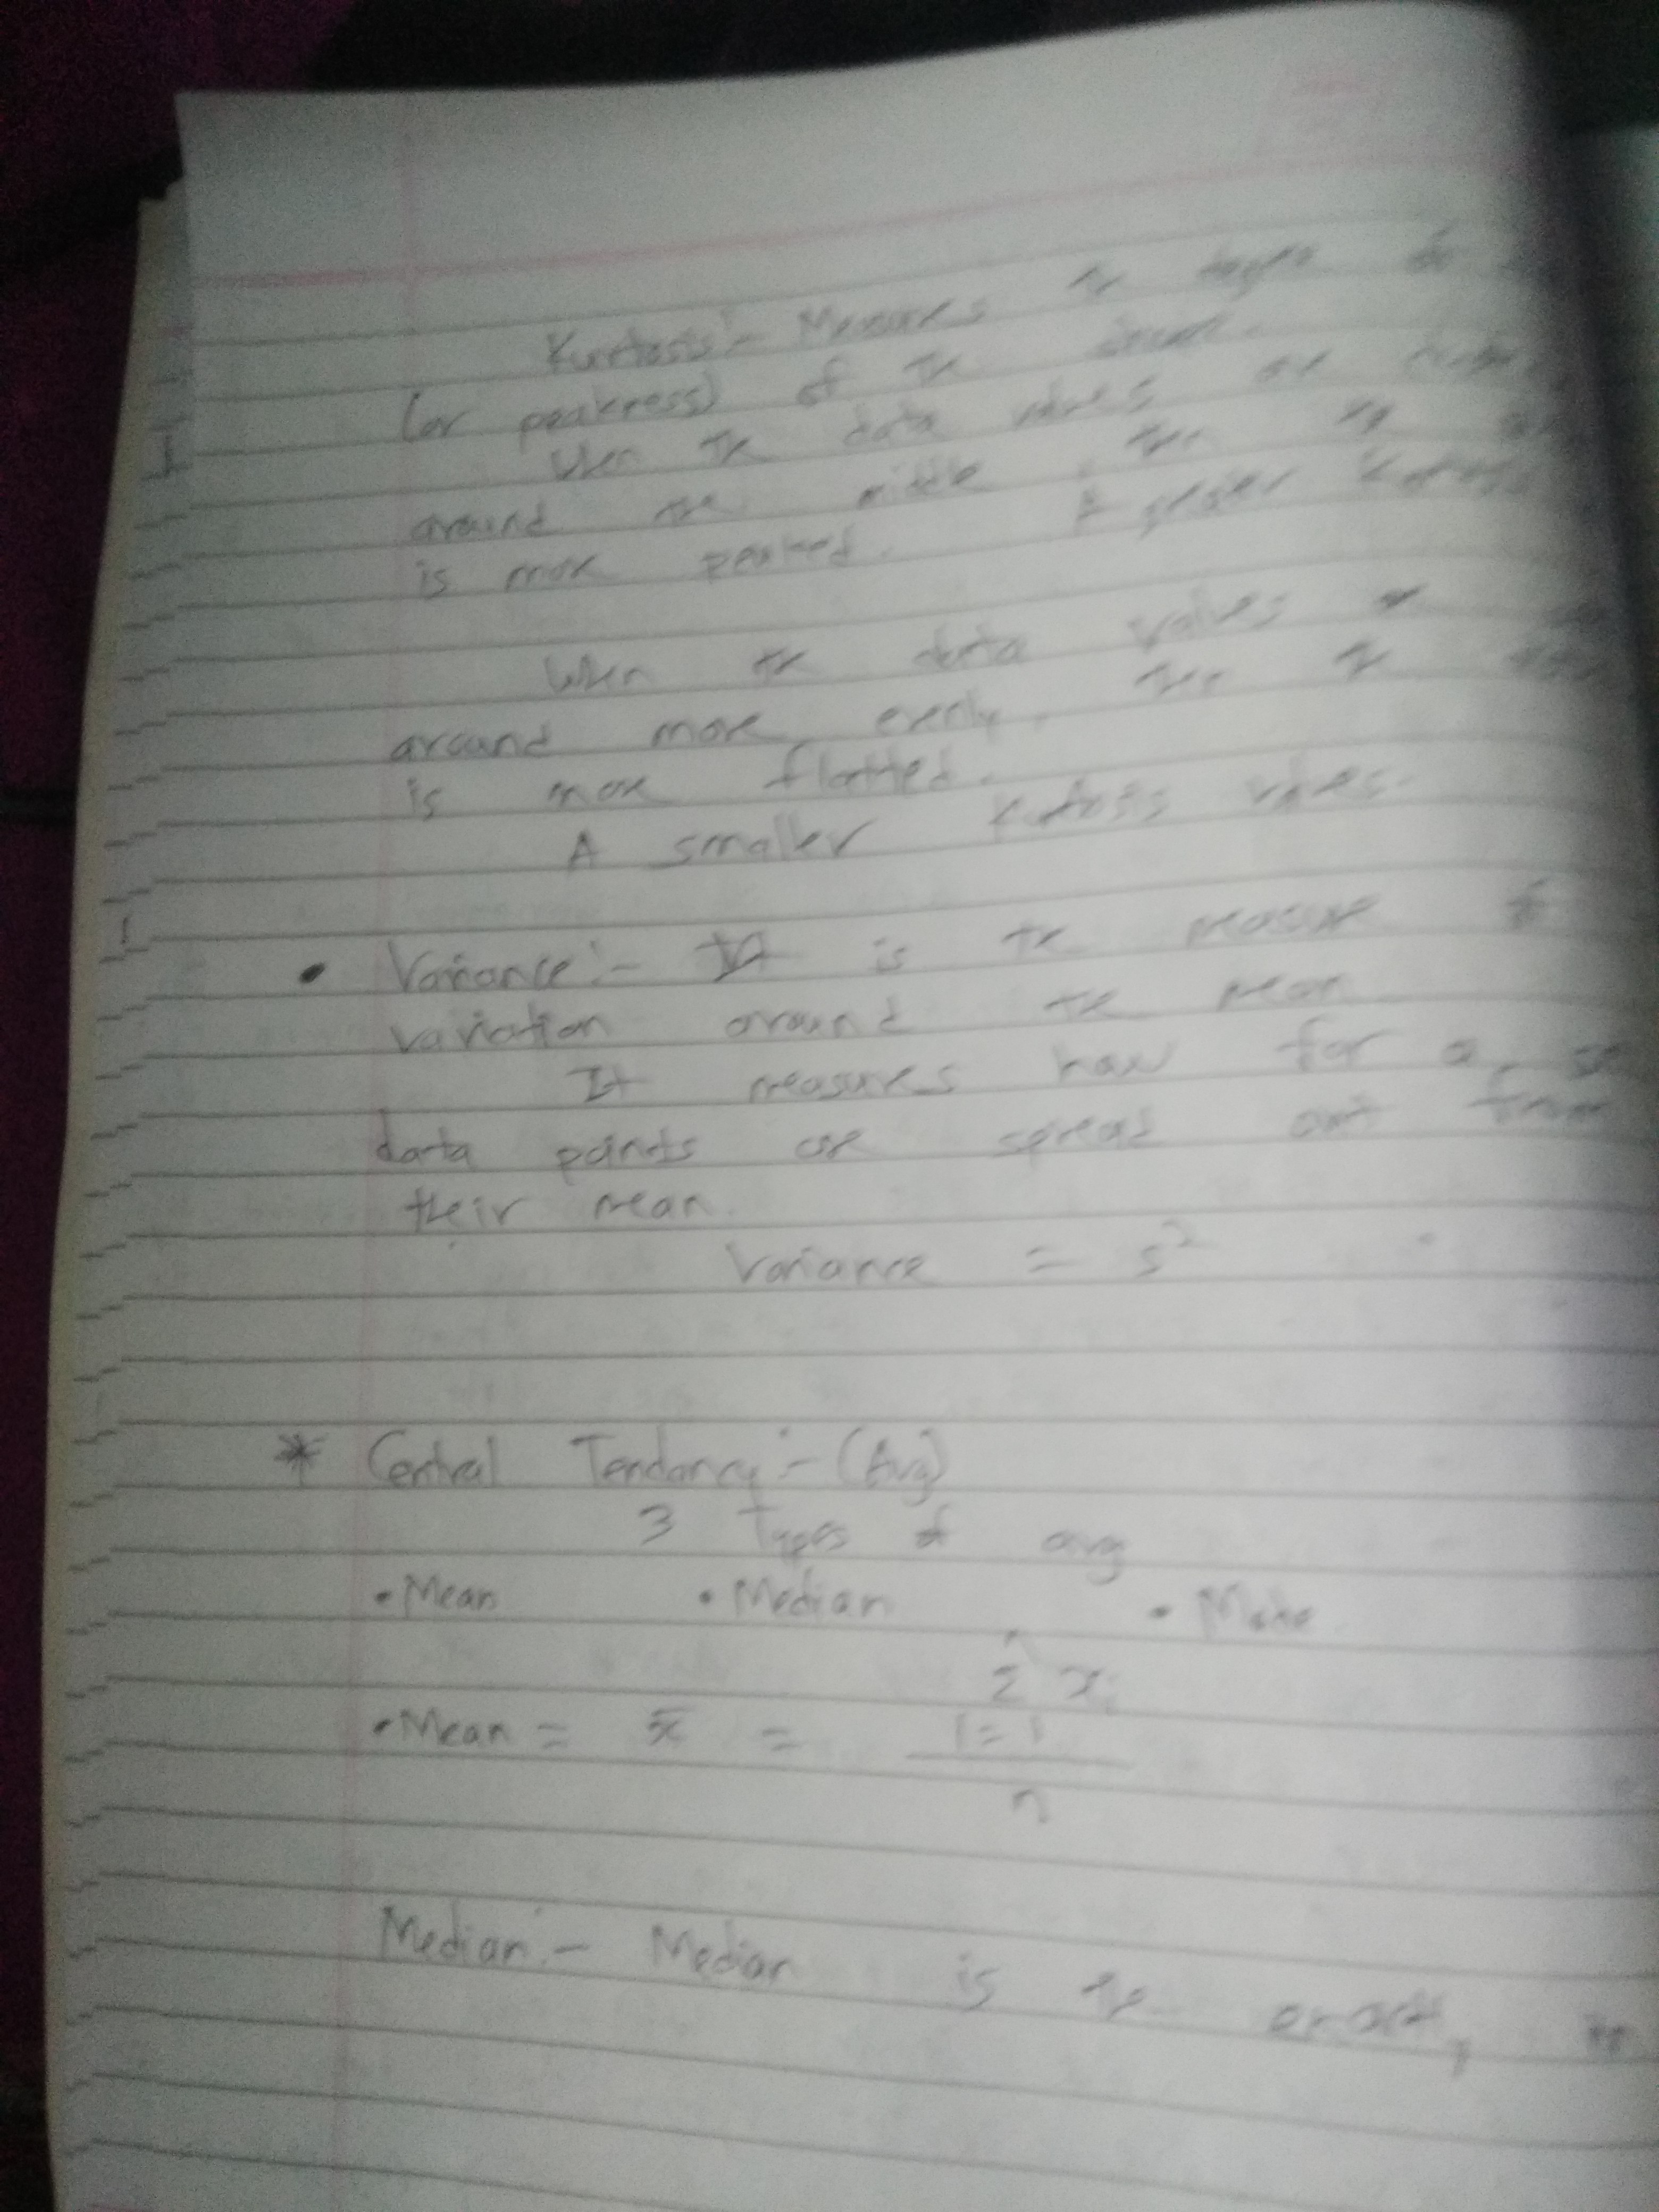 Kurtosis:- Measures the degree of
(or peakness) of the
When the data values are
around the middle, then the
is more peaked. A greater Kutosis
When the data values are
around more evenly, then the
is more flatted.
A smaller Kutosis values.
• Variance:- It is the measure of
variation around the mean
It measures how far a set
data points are spread out from
their mean.
Variance = s²
* Central Tendancy:- (Avg)
3 Types of avg
• Mean • Median • Mode
n
Σ xi
• Mean = x̄ = i=1
n
Median:- Median is the exact,